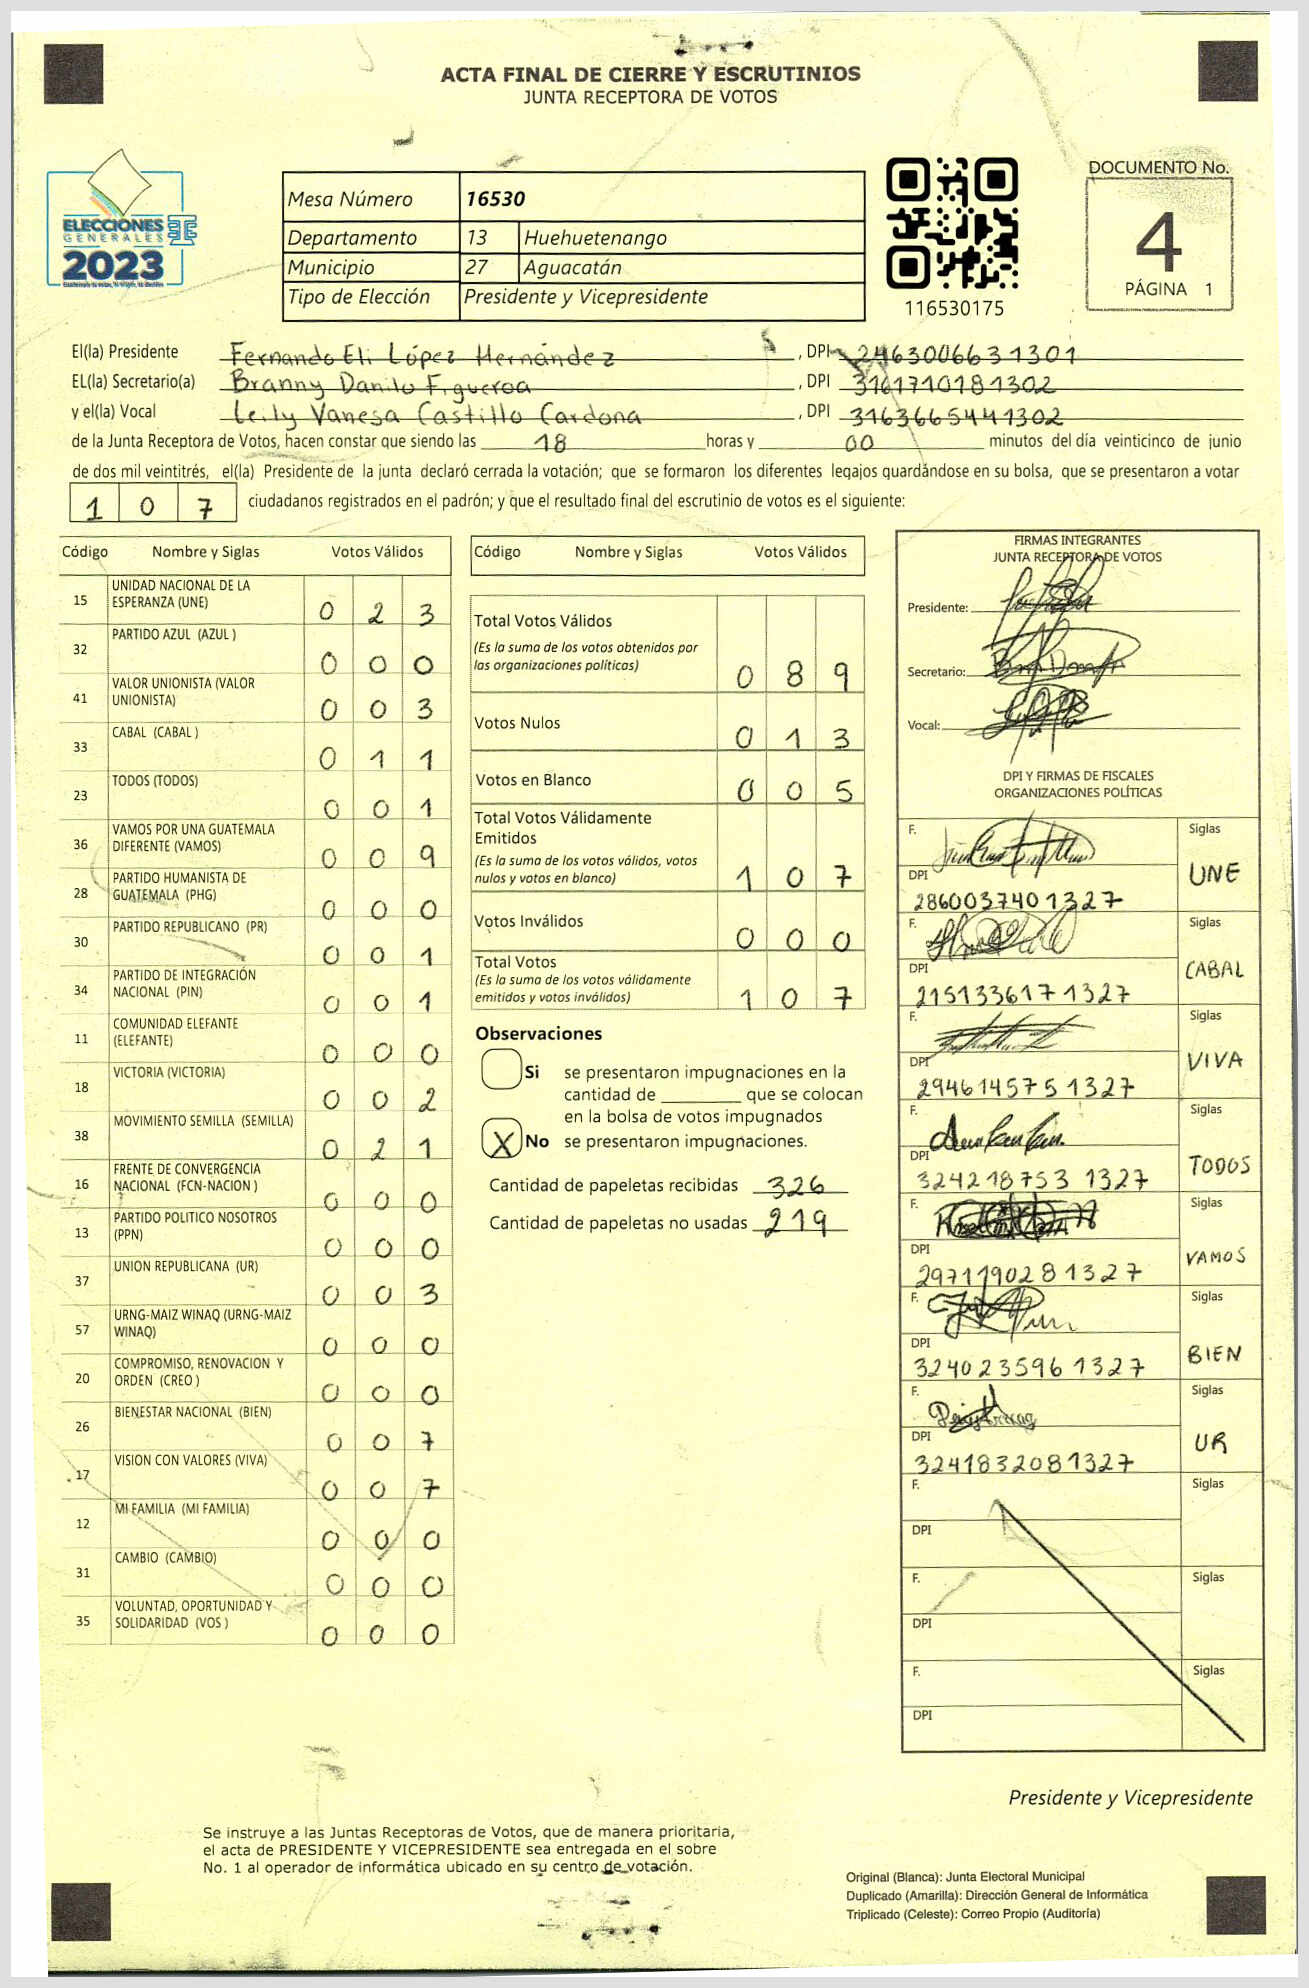 ACTA FINAL DE CIERRE Y ESCRUTINIOS
JUNTA RECEPTORA DE VOTOS
ELECCIONES
GENERALES
2023
Mesa Número 16530
Departamento 13 Huehuetenango
Municipio 27 Aguacatán
Tipo de Elección Presidente y Vicepresidente
116530175
DOCUMENTO No.
4
PÁGINA 1
El(la) Presidente Fernando Eli López Hernández, DPI 2463006631301
EL(la) Secretario(a) Branny Danilo Figueroa, DPI 3161710181302
y el(la) Vocal Leily Vanesa Castillo Cardona, DPI 3163665441302
de la Junta Receptora de Votos, hacen constar que siendo las 18 horas y 00 minutos del día veinticinco de junio
de dos mil veintitrés, el(la) Presidente de la junta declaró cerrada la votación; que se formaron los diferentes legajos guardándose en su bolsa, que se presentaron a votar
1 0 7 ciudadanos registrados en el padrón; y que el resultado final del escrutinio de votos es el siguiente:
Código Nombre y Siglas Votos Válidos
15 UNIDAD NACIONAL DE LA
ESPERANZA (UNE) 0 2 3
32 PARTIDO AZUL (AZUL ) 0 0 0
41 VALOR UNIONISTA (VALOR
UNIONISTA) 0 0 3
33 CABAL (CABAL ) 0 1 1
23 TODOS (TODOS) 0 0 1
36 VAMOS POR UNA GUATEMALA
DIFERENTE (VAMOS) 0 0 9
28 PARTIDO HUMANISTA DE
GUATEMALA (PHG) 0 0 0
30 PARTIDO REPUBLICANO (PR) 0 0 1
34 PARTIDO DE INTEGRACIÓN
NACIONAL (PIN) 0 0 1
11 COMUNIDAD ELEFANTE
(ELEFANTE) 0 0 0
18 VICTORIA (VICTORIA) 0 0 2
38 MOVIMIENTO SEMILLA (SEMILLA) 0 2 1
16 FRENTE DE CONVERGENCIA
NACIONAL (FCN-NACION ) 0 0 0
13 PARTIDO POLITICO NOSOTROS
(PPN) 0 0 0
37 UNION REPUBLICANA (UR) 0 0 3
57 URNG-MAIZ WINAQ (URNG-MAIZ
WINAQ) 0 0 0
20 COMPROMISO, RENOVACION Y
ORDEN (CREO ) 0 0 0
26 BIENESTAR NACIONAL (BIEN) 0 0 7
17 VISION CON VALORES (VIVA) 0 0 7
12 MI FAMILIA (MI FAMILIA) 0 0 0
31 CAMBIO (CAMBIO) 0 0 0
35 VOLUNTAD, OPORTUNIDAD Y
SOLIDARIDAD (VOS ) 0 0 0
Código Nombre y Siglas Votos Válidos
Total Votos Válidos
(Es la suma de los votos obtenidos por
las organizaciones políticas) 0 8 9
Votos Nulos 0 1 3
Votos en Blanco 0 0 5
Total Votos Válidamente
Emitidos
(Es la suma de los votos válidos, votos
nulos y votos en blanco) 1 0 7
Votos Inválidos 0 0 0
Total Votos
(Es la suma de los votos válidamente
emitidos y votos inválidos) 1 0 7
Observaciones
Si se presentaron impugnaciones en la
cantidad de ________ que se colocan
en la bolsa de votos impugnados
X No se presentaron impugnaciones.
Cantidad de papeletas recibidas 326
Cantidad de papeletas no usadas 219
FIRMAS INTEGRANTES
JUNTA RECEPTORA DE VOTOS
Presidente:
Secretario:
Vocal:
DPI Y FIRMAS DE FISCALES
ORGANIZACIONES POLÍTICAS
F. Siglas
UNE
DPI
2860037401327
F. Siglas
CABAL
DPI
2151336171327
F. Siglas
VIVA
DPI
2946145751327
F. Siglas
TODOS
DPI
3242187531327
F. Siglas
VAMOS
DPI
2971190281327
F. Siglas
BIEN
DPI
3240235961327
F. Siglas
UR
DPI
3241832081327
F. Siglas
DPI
F. Siglas
DPI
F. Siglas
DPI
Presidente y Vicepresidente
Se instruye a las Juntas Receptoras de Votos, que de manera prioritaria,
el acta de PRESIDENTE Y VICEPRESIDENTE sea entregada en el sobre
No. 1 al operador de informática ubicado en su centro de votación.
Original (Blanca): Junta Electoral Municipal
Duplicado (Amarilla): Dirección General de Informática
Triplicado (Celeste): Correo Propio (Auditoría)